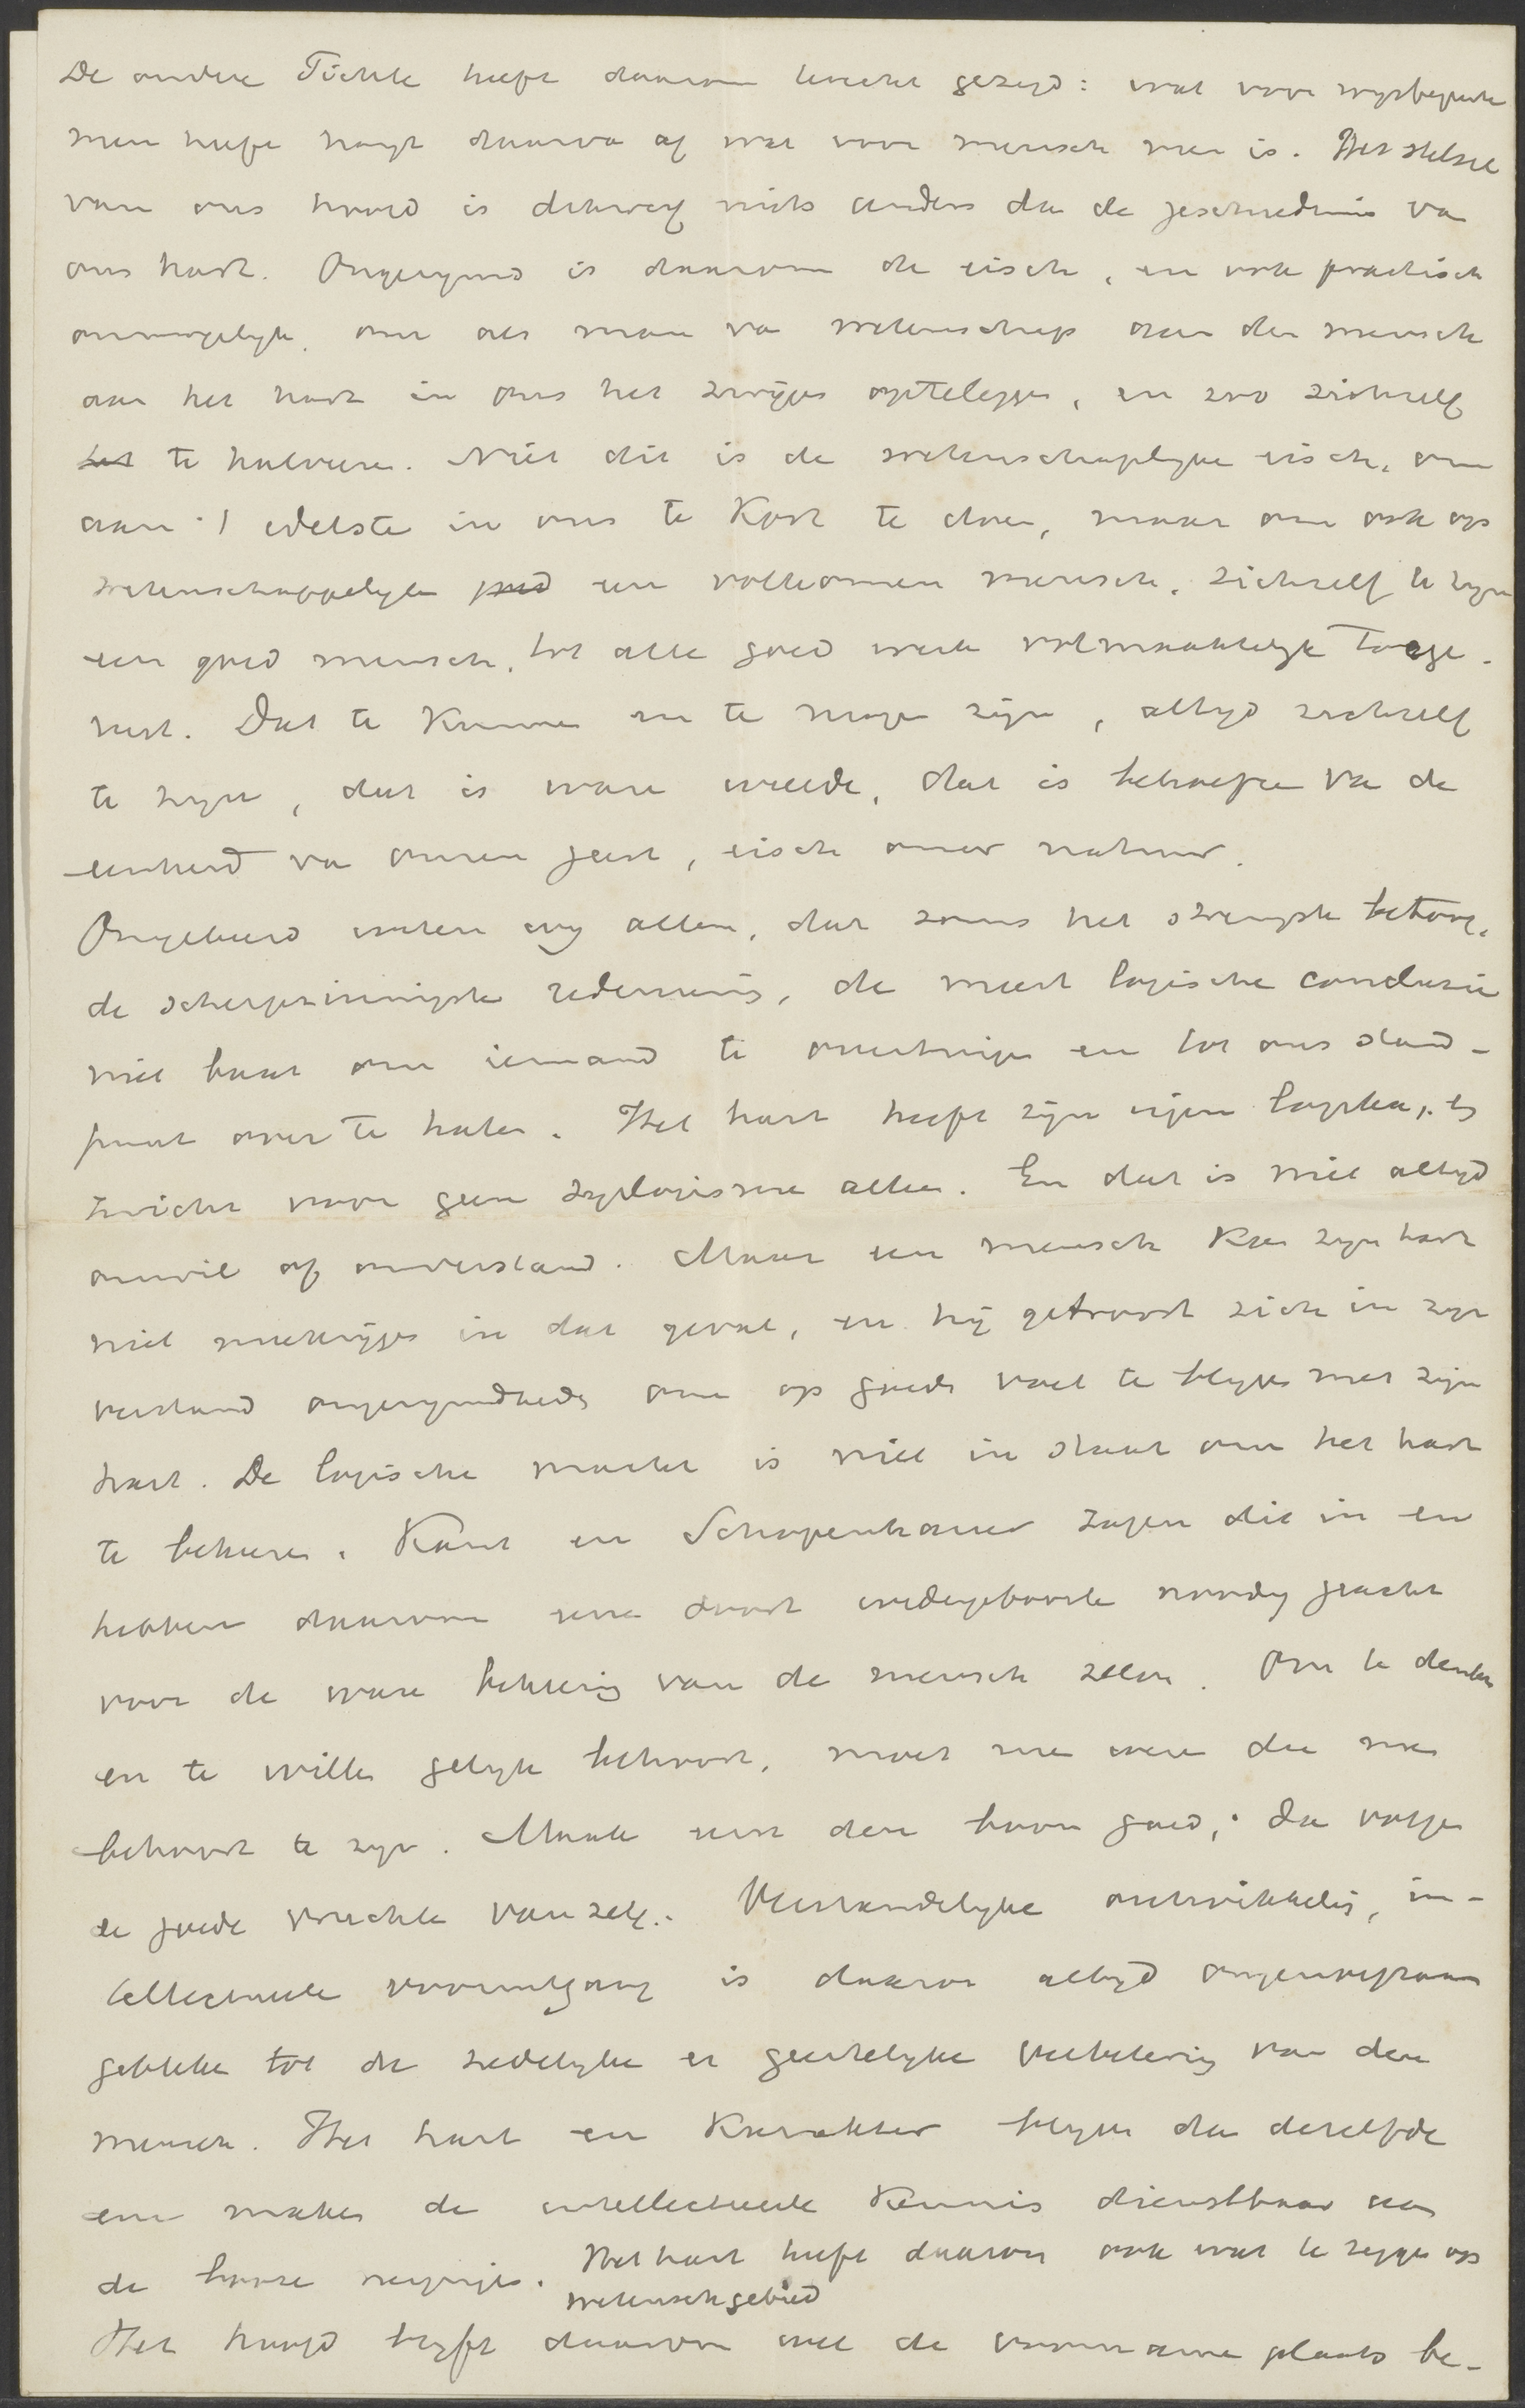 De oudere Fichte heeft daarom terecht gezegd: wat voor wijsbegeerte
men heeft hangt daarva af wat voor mensch men is. Het stelsel
van ons hoofd is dikwerf niets anders dan de geschiedenis va
ons hart. Ongerymd is daarom de eisch, en ook practisch
onmogelyk, om als man va wetenschap aan den mensch
aan het hart in ons het zwijgen opteleggen, en zoo zichzelf
te halveeren. Niet dit is de wetenschaplyke eisch, om
aan 't edelste in ons te kort te doen, maar om ook op
wetenschappelyk een volkomen mensch, zichzelf te zyn
een goed mensch, tot alle goed werk volmaaktelyk toege-
rust. Dat te kunnen en te mogen zijn, altyd zichzelf
te zyn, dat is ware vrede, dat is behoefte va de
eenheid va onzen geest, eisch onzer natuur.
Ongeleerd weten wy allen, dat soms het strengste betoog,
de scherpzinnigste redeneering, de meest logische conclusie
niet baat om iemand te overtuigen en tot ons stand-
punt over te halen. Het hart heeft zijn eigen logika, 't
zwicht voor geen syllogisme allen. En dat is niet altyd
onwil of onverstand. Maar een mensch kan zyn hart
niet meekrijgen in dat geval, en hij getroost zich in zyn
verstand ongerymdheden om op goede voet te blyven met zijn
hart. De logische macht is niet in staat om het hart
te bekeeren. Kant en Schopenhauer zagen dit in en
hebben daarom eene soort wedergeboorte noodig geacht
voor de ware bekeering van de mensch zelve. Om te denken
en te willen gelyk behoort, moet men weze die men
behoort te zyn. Maak eerst den boom goed; da volgen
de goede vruchten vanzelf. Verstandelyke ontwikkeling, in-
tellectueele vooruitgang is daarom altyd ongenoegzaam
gebleken tot de zedelyke en geestelyke verbetering van den
mensch. Het hart en karakter blyven dan dezelfde
en maken de intellectueele kennis dienstbaar aan
de booze neigingen. Het hart heeft daarom ook wat te zeggen op
wetenschgebied
Het hoofd blyft daarom wel de voorname plaats be-